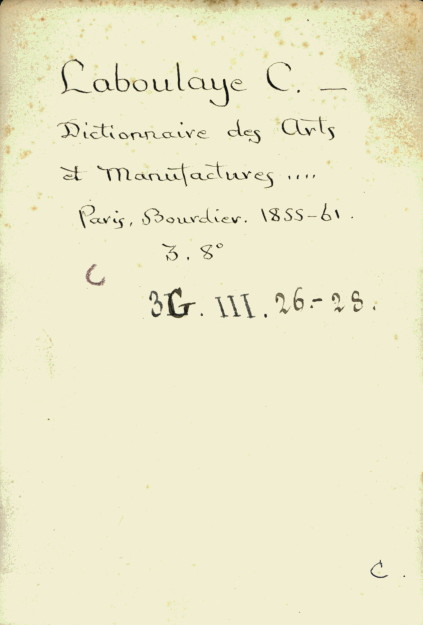 Laboulaye C. —
Dictionnaire des Arts
et Manufactures ....
Paris, Bourdier. 1855-61.
3. 8°
C
3G. III. 26.-28.
C.